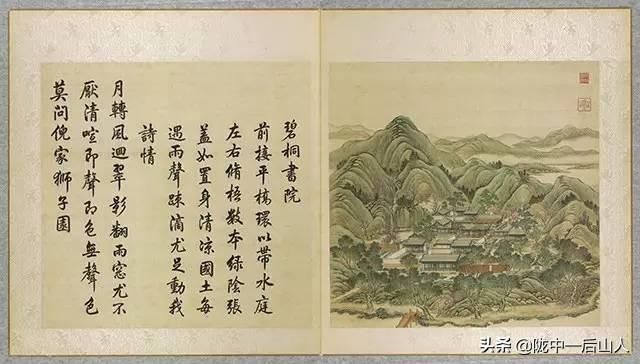 碧桐書院
前接平橋環以帶水庭
左右脩梧數本綠陰張
蓋如置身清凉國土每
遇雨聲踈滴尤足動我
詩情
月轉風迴翠影翻雨窓尤不
厭清喧即聲即色無聲色
莫問倪家獅子園
头条 @陇中一后山人